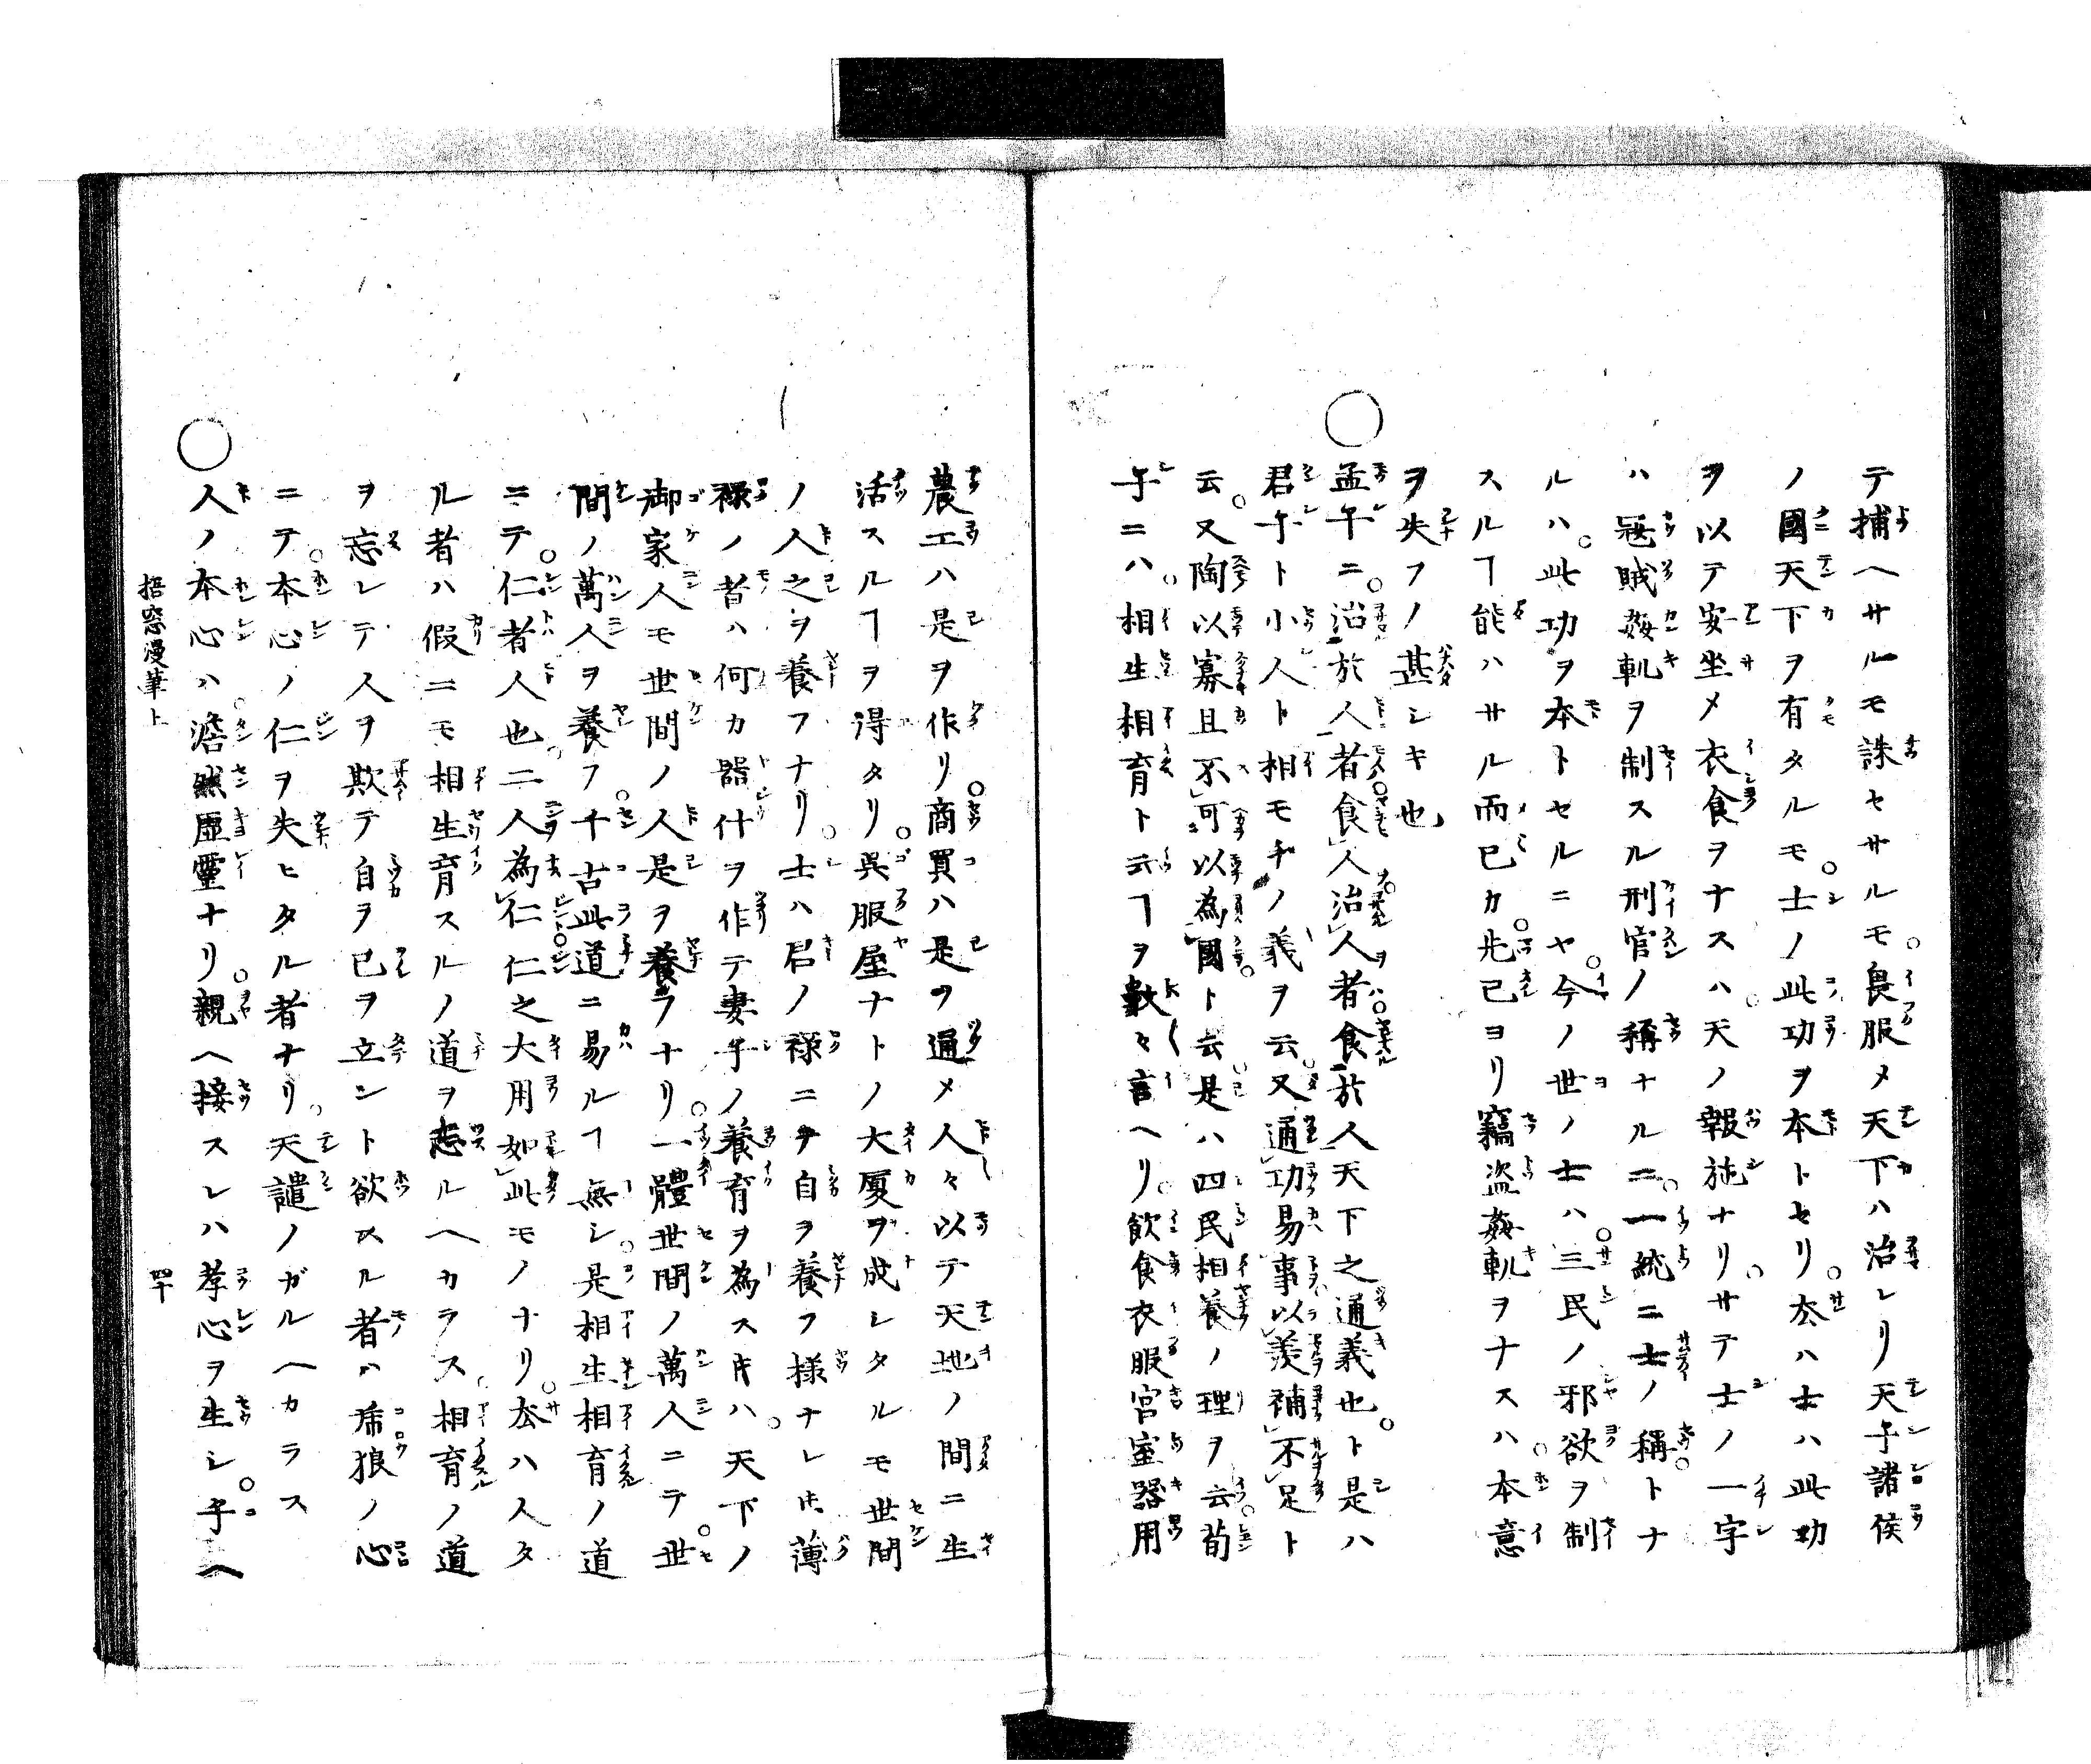 テ捕ヘサルモ誅セサルモ。畏服メ天下ハ治レリ天子諸侯
ノ國天下ヲ有タルモ。士ノ此功ヲ本トセリ。厺ハ士ハ此功
ヲ以テ安坐メ衣食ヲナスハ。天ノ報施ナリ。サテ士ノ一字
ハ冦賊姦軌ヲ制スル刑官ノ稱ナルニ。一統ニ士ノ稱。トナ
ルハ。此功ヲ本トセルニヤ。今ノ世ノ士ハ。三民ノ邪欲ヲ制
スルヿ能ハサル而已カ。先己ヨリ竊盗姦軌ヲナスハ。本意
ヲ失フノ甚シキ也
○孟子ニ。治於人者食人治人者食於人天下之通義也。ト是ハ
君子ト小人ト相モチノ義ヲ云。又通功易事以羨補不足ト
云。又陶以寡且不可以為國。ト云。是ハ四民相養ノ理ヲ云。荀
子ニハ。相生相育ト云ヿヲ數々言ヘリ。飲食衣服宮室器用
農工ハ是ヲ作リ。商買ハ是ヲ通メ人々以テ天地ノ間ニ生
活スルヿヲ得タリ。呉服屋ナトノ大厦ヲ成シタルモ世間
ノ人之ヲ養フナリ。士ハ君ノ禄ニテ自ヲ養フ様ナレ𪜈薄
禄ノ者ハ何カ器什ヲ作テ妻子ノ養育ヲ為スキハ。天下ノ
御家人モ世間ノ人是ヲ養フナリ。一體世間ノ萬人ニテ。世
間ノ萬人ヲ養フ。千古此道ニ易ルヿ無シ。是相生相育ノ道
ニテ。仁者人也。二人為仁。仁之大用如此モノナリ。厺ハ人タ
ル者ハ假ニモ相生育スルノ道ヲ忘ルヘカラス。相育ノ道
ヲ忘レテ人ヲ欺テ自ヲ已ヲ立ント欲スル者ハ乕狼ノ心
ニテ。本心ノ仁ヲ失ヒタル者ナリ。天譴ノガルヘカラス
○人ノ本心ハ。澹然虚靈ナリ。親ヘ接スレハ孝心ヲ生シ。子ヘ
梧窓漫筆上
四十